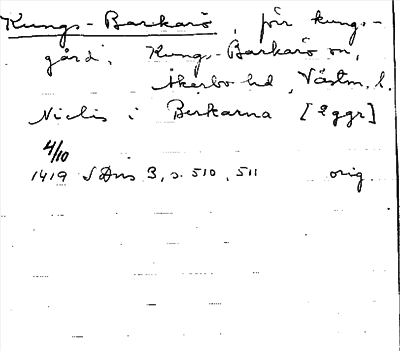 Kungs-Barkarö, förr kungs-
gård, Kungs-Barkarö sn,
Åkerbo hd, Västm. l.
Niclis i Berkarna [2 ggr]
4/10
1419 SDns 3, s. 510, 511 orig.